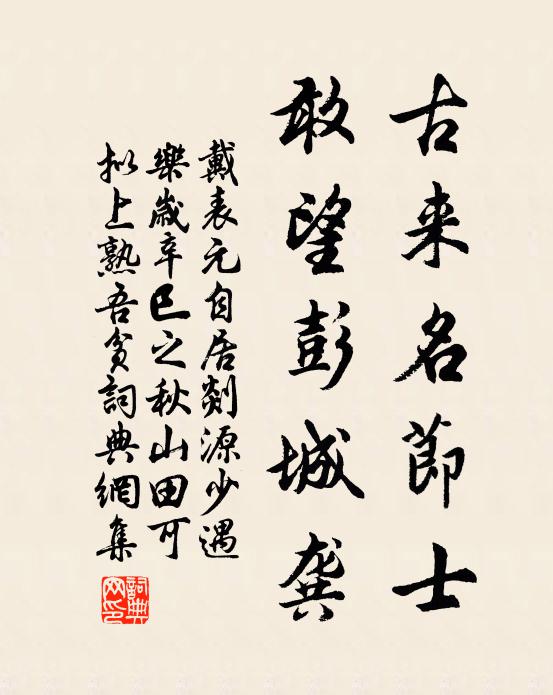 古来名節士
敢望彭城龔
戴表元自居剡源少遇
樂歳辛巳之秋山田可
拟上熟吾貧詞典網集
詞典網印